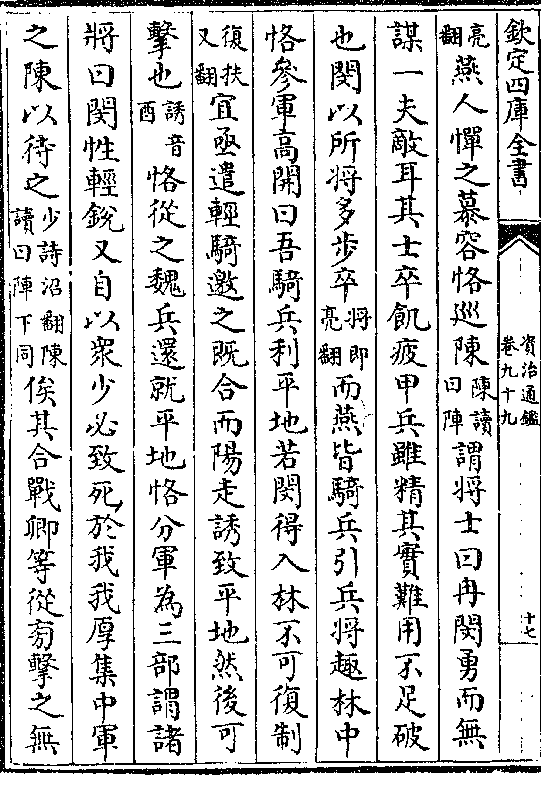 欽定四庫全書
資治通鑑
卷九十九
十七
亮翻燕人憚之慕容恪巡陳陳讀曰陣謂將士曰冉閔勇而無
謀一夫敵耳其士卒飢疲甲兵雖精其實難用不足破
也閔以所將多步卒將即亮翻而燕皆騎兵引兵將趣林中
恪參軍高開曰吾騎兵利平地若閔得入林不可復制
復扶又翻宜亟遣輕騎邀之既合而陽走誘致平地然後可
擊也誘音酉恪從之魏兵還就平地恪分軍為三部謂諸
將曰閔性輕銳又自以衆少必致死於我我厚集中軍
之陳以待之少詩沼翻陳讀曰陣下同俟其合戰卿等從旁擊之無